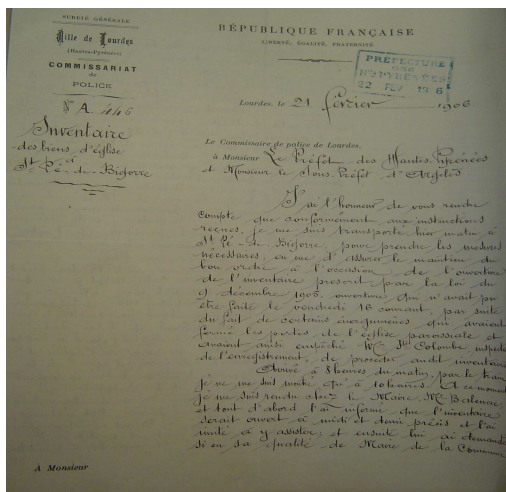 SURETÉ GÉNÉRALE
Ville de Lourdes
(Hautes-Pyrénées)
COMMISSARIAT
de
POLICE
N° A 446
Inventaire
des biens d'église
à
St Pé-de-Bigorre
RÉPUBLIQUE FRANÇAISE
LIBERTÉ, ÉGALITÉ, FRATERNITÉ.
PRÉFECTURE
DES
HTES PYRÉNÉES
22 FEV 1906
Lourdes, le 21 février 1906
Le Commissaire de police de Lourdes,
à Monsieur Le Préfet des Hautes-Pyrénées
et Monsieur le Sous-Préfet d'Argelès
J'ai l'honneur de vous rendre
compte que conformément aux instructions
reçues, je me suis transporté hier matin à
St Pé-de-Bigorre, pour prendre les mesures
nécessaires, en vue d'assurer le maintien du
bon ordre à l'occasion de l'ouverture
de l'inventaire prescrit par la loi du
9 décembre 1905, ouverture qui n'avait pu
être faite le vendredi 16 courant, par suite
du fait de certains énergumènes qui avaient
fermé les portes de l'église paroissiale et
avaient ainsi empêché Mr Ste Colombe, inspecte
de l'enregistrement, de procéder audit inventaire
Arrivé à 8 heures du matin, par le train
je ne me suis qu'à 10 heures. A ce moment
je me suis rendu chez le Maire, Mr
et tout d'abord l'ai informé que l'inventaire
serait ouvert à midi et demi précis et l'ai
invité à y assister; et ensuite lui ai demandé
si en sa qualité de Maire de la Commune
A Monsieur